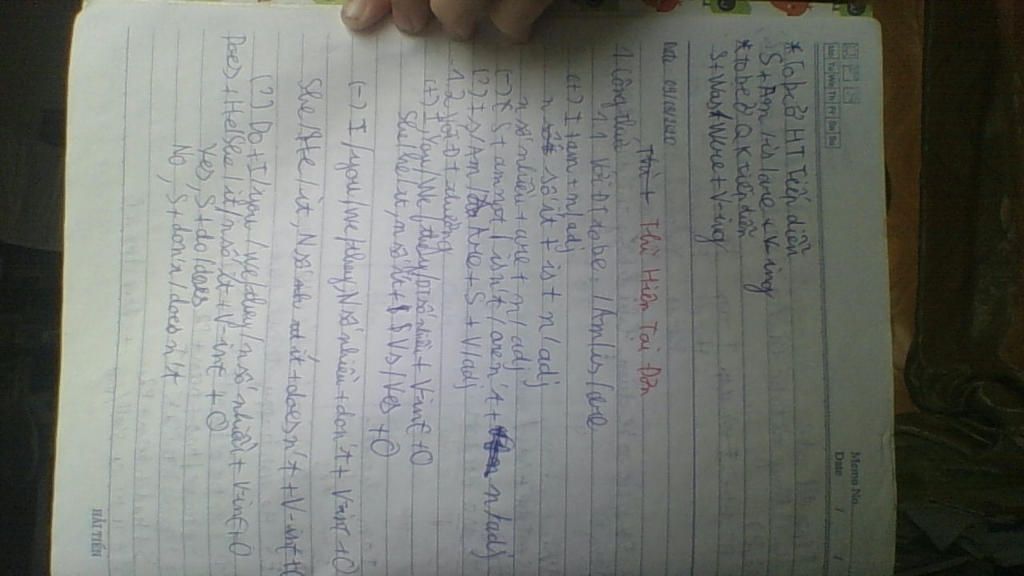 Memo No.
Date / /
Mo Tu We Th Fr Sa Su
* Tobe ở HT Tiếp diễn
S + Am / is / are + V-ing
* tobe ở QK tiếp diễn
S + Was / Were + V-ing
Thì Hiện Tại Đơn
1 Công thức
1.1 Với ĐT tobe / Am / is / are
(+) I + am + n / adj
n số ít + is + n / adj
n số nhiều + are + n / adj
(-) S + am not / isn't / aren't + n / adj
(?) Is / Am / Are + S + V / adj
1.2 Với ĐT thường
(+) I / you / We / they / n số nhiều + V-inf + O
She / he / it, n số ít + Vs / Ves + O
(-) I / you / we / they, N số nhiều + don't + V-inf + O
She / He / it, N số ít + doesn't + V-inf + O
(?) Do + I / you / we / they / n số nhiều + V-inf + O
Does + He / She / it / n số ít + V-inf + O
Yes, S + do / does
No, S + don't / doesn't
HẢI TIẾN